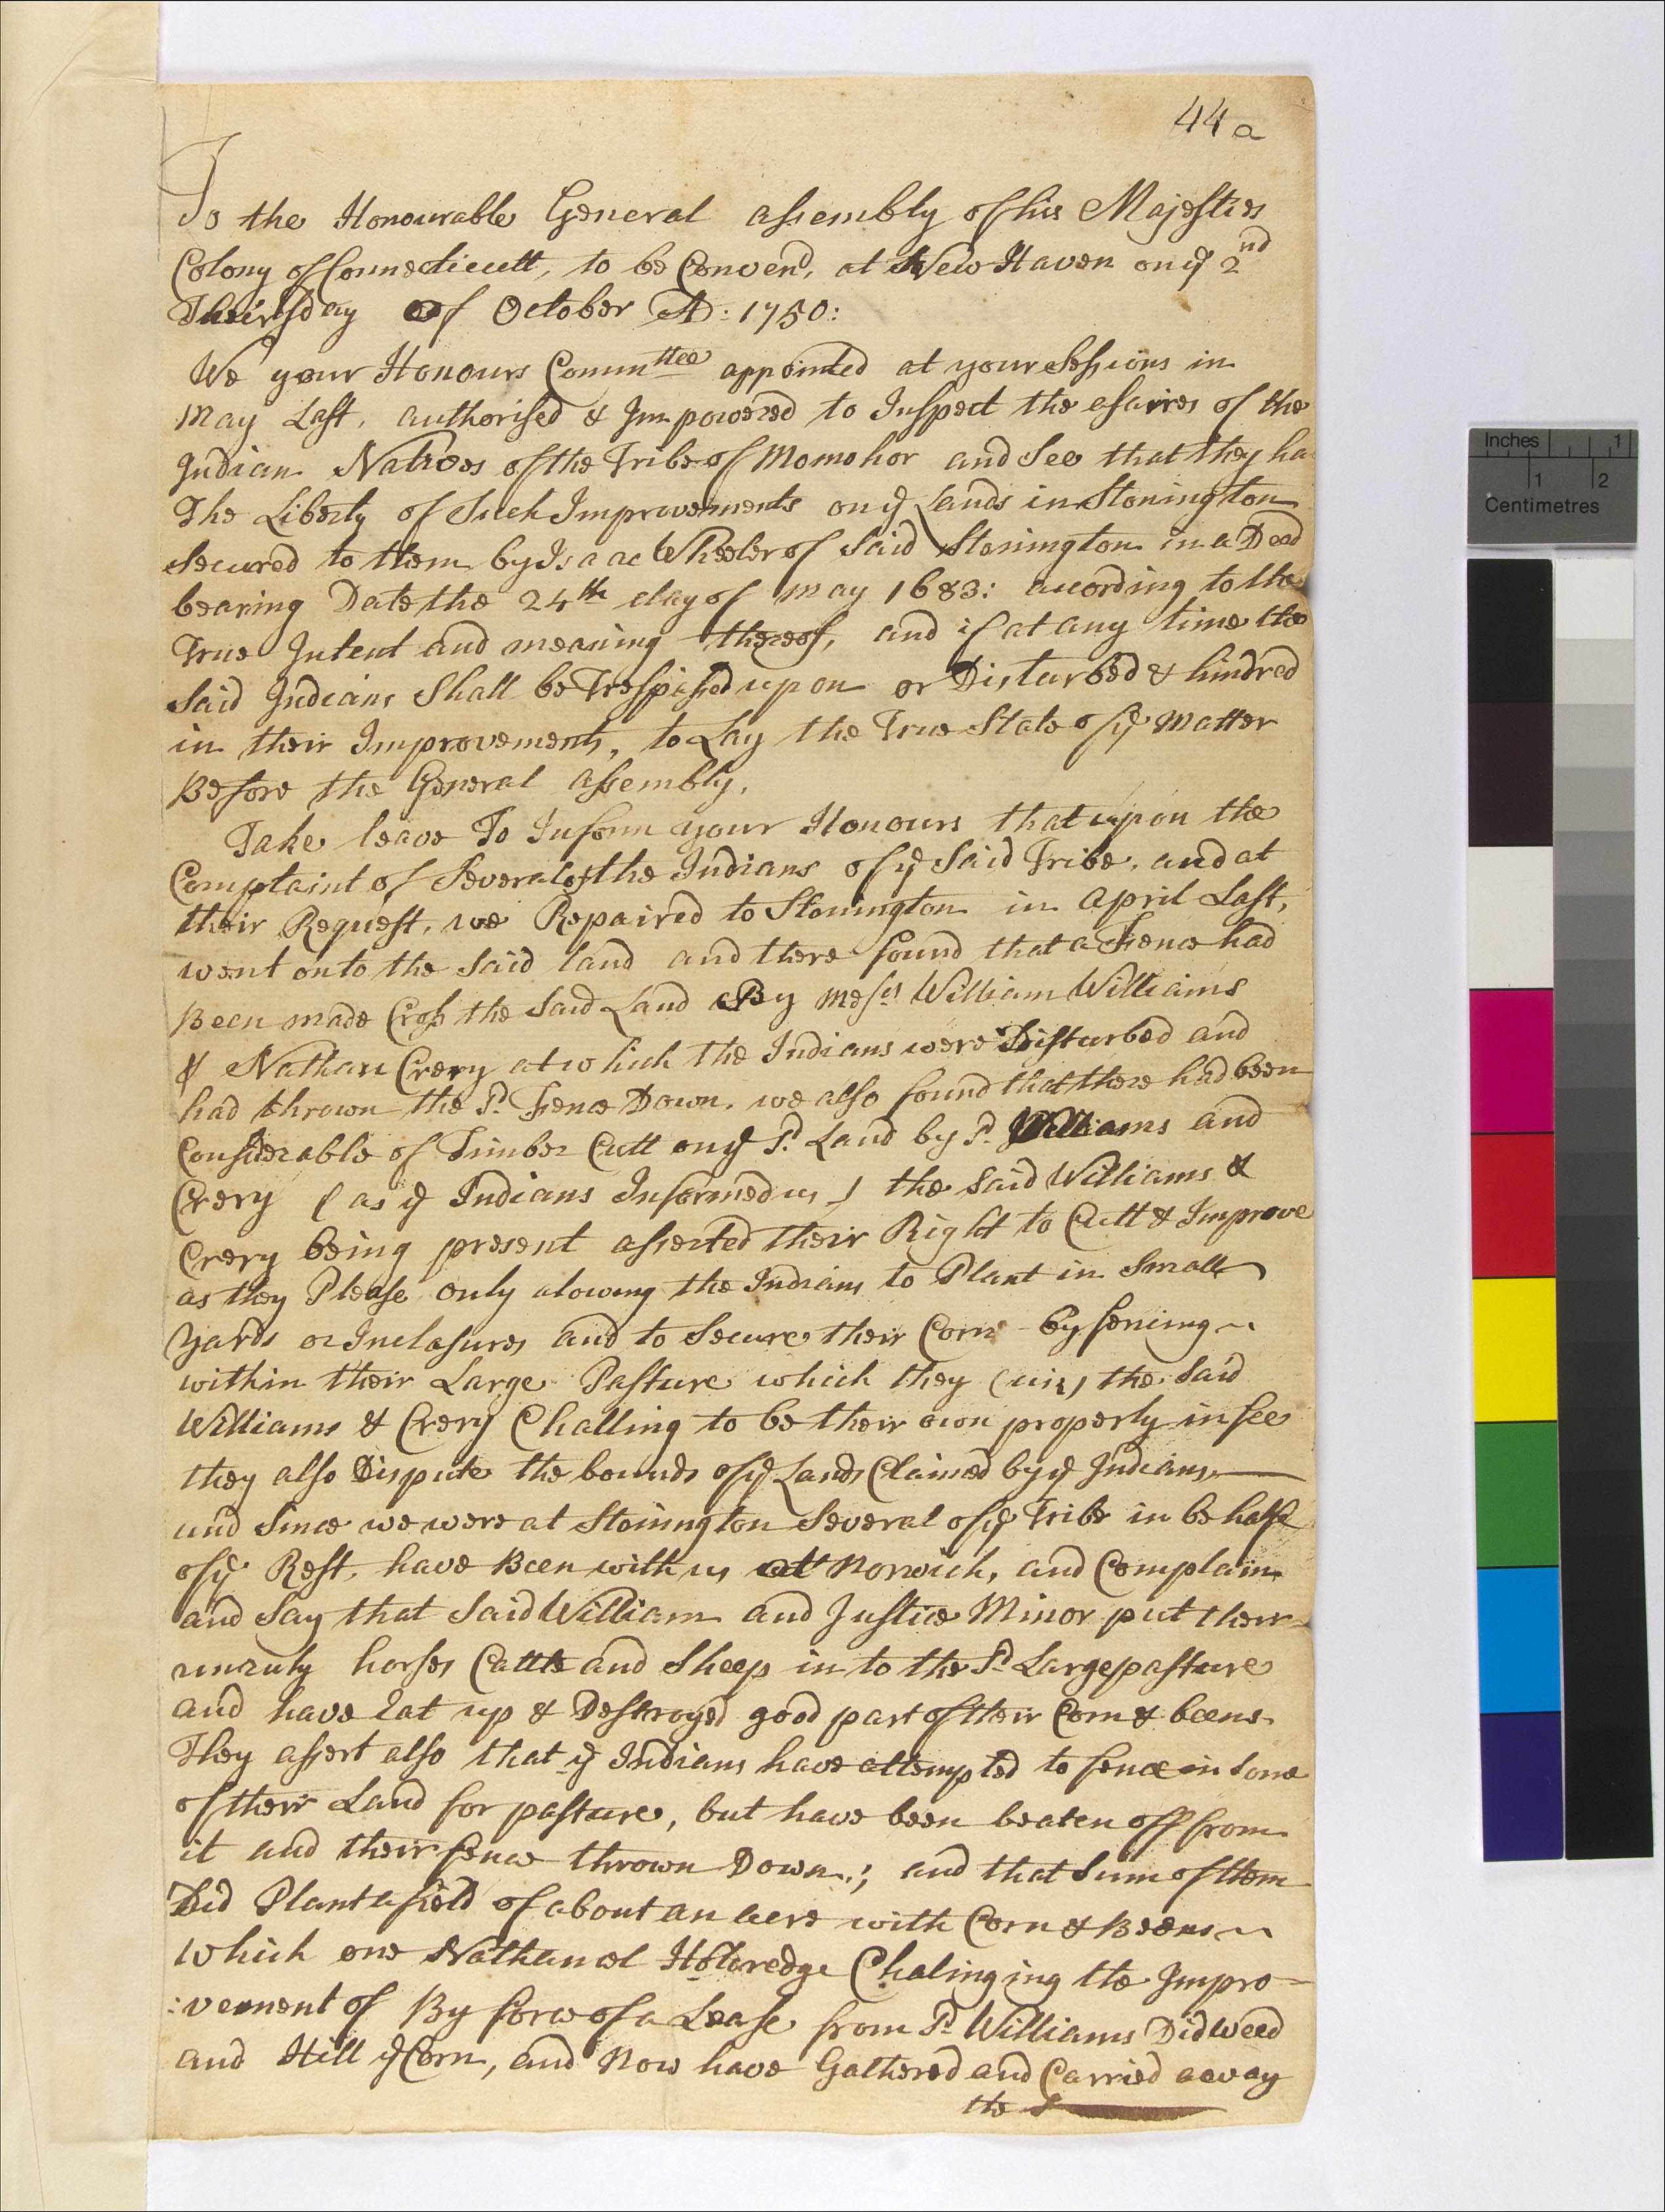 44a
To the Honourable General assembly of his Majesties
Colony of Connecticutt, to be Conven'd, at New Haven on ye 2nd
Thursday of October AD: 1750:
We your Honours Commttee appointed at your Sessions in
May Last, authorised & Impowered to Inspect the afaires of the
Indian Natives of the Tribe of Momohor and See that they ha
The Liberty of Such Improvements on ye Lands in Stonington
Secured to them by Isaac Wheeler of Said Stonington in a Deed
bearing Date the 24th day of May 1683: according to the
True Intent and meaning thereof, and if at any time the
Said Indians Shall be Trespassed upon or Disturbed & hindred
in their Improvements, to Lay the True State of ye Matter
Before the General Assembly,
Take leave To Inform your Honours that upon the
Complaint of Several of the Indians of ye Said Tribe, and at
their Request, we Repaired to Stonington in April Last,
went onto the Said land and there found that a Fence had
Been made Cross the Said Land By Messrs William Williams
& Nathan Crery at which the Indians were Disturbed and
had thrown the Sd. Fence Down. we also found that there had been
Considerable of Timber Cutt on ye Sd. Land by Sd. Williams and
Crery (as ye Indians Informed us) the Said Williams &
Crery being present asserted their Right to Cutt & Improve
as they Please only alowing the Indians to Plant in Small
yards or Inclosures and to Secure their Corn by fencing
within their Large Pasture which they (viz) the Said
Williams & Crery Challing to be their own property in fee
they also Dispute the bounds of ye Lands Claimed by ye Indians
and Since we were at Stonington Several of ye Tribe in behalf
of ye Rest, have Been with us at Norwich, and Complain
and Say that Said William and Justice Minor put their
unruly horses Cattle and Sheep in to the Sd Large pasture
and have Eat up & Destroyed good part of their Corn & beens
They assert also that ye Indians have attempted to fence in Some
of their Land for pasture, but have been beaten off from
it and their fence thrown Down; and that Sum of them
Did Plant a field of about an acre with Corn & Beens
Which one Nathanael Holdredge Chalinging the Impro=
:vement of By force of a Lease from Sd Williams Did Weed
and Hill ye Corn, and Now have Gathered and Carried away
the
Inches 1
1 2
Centimetres